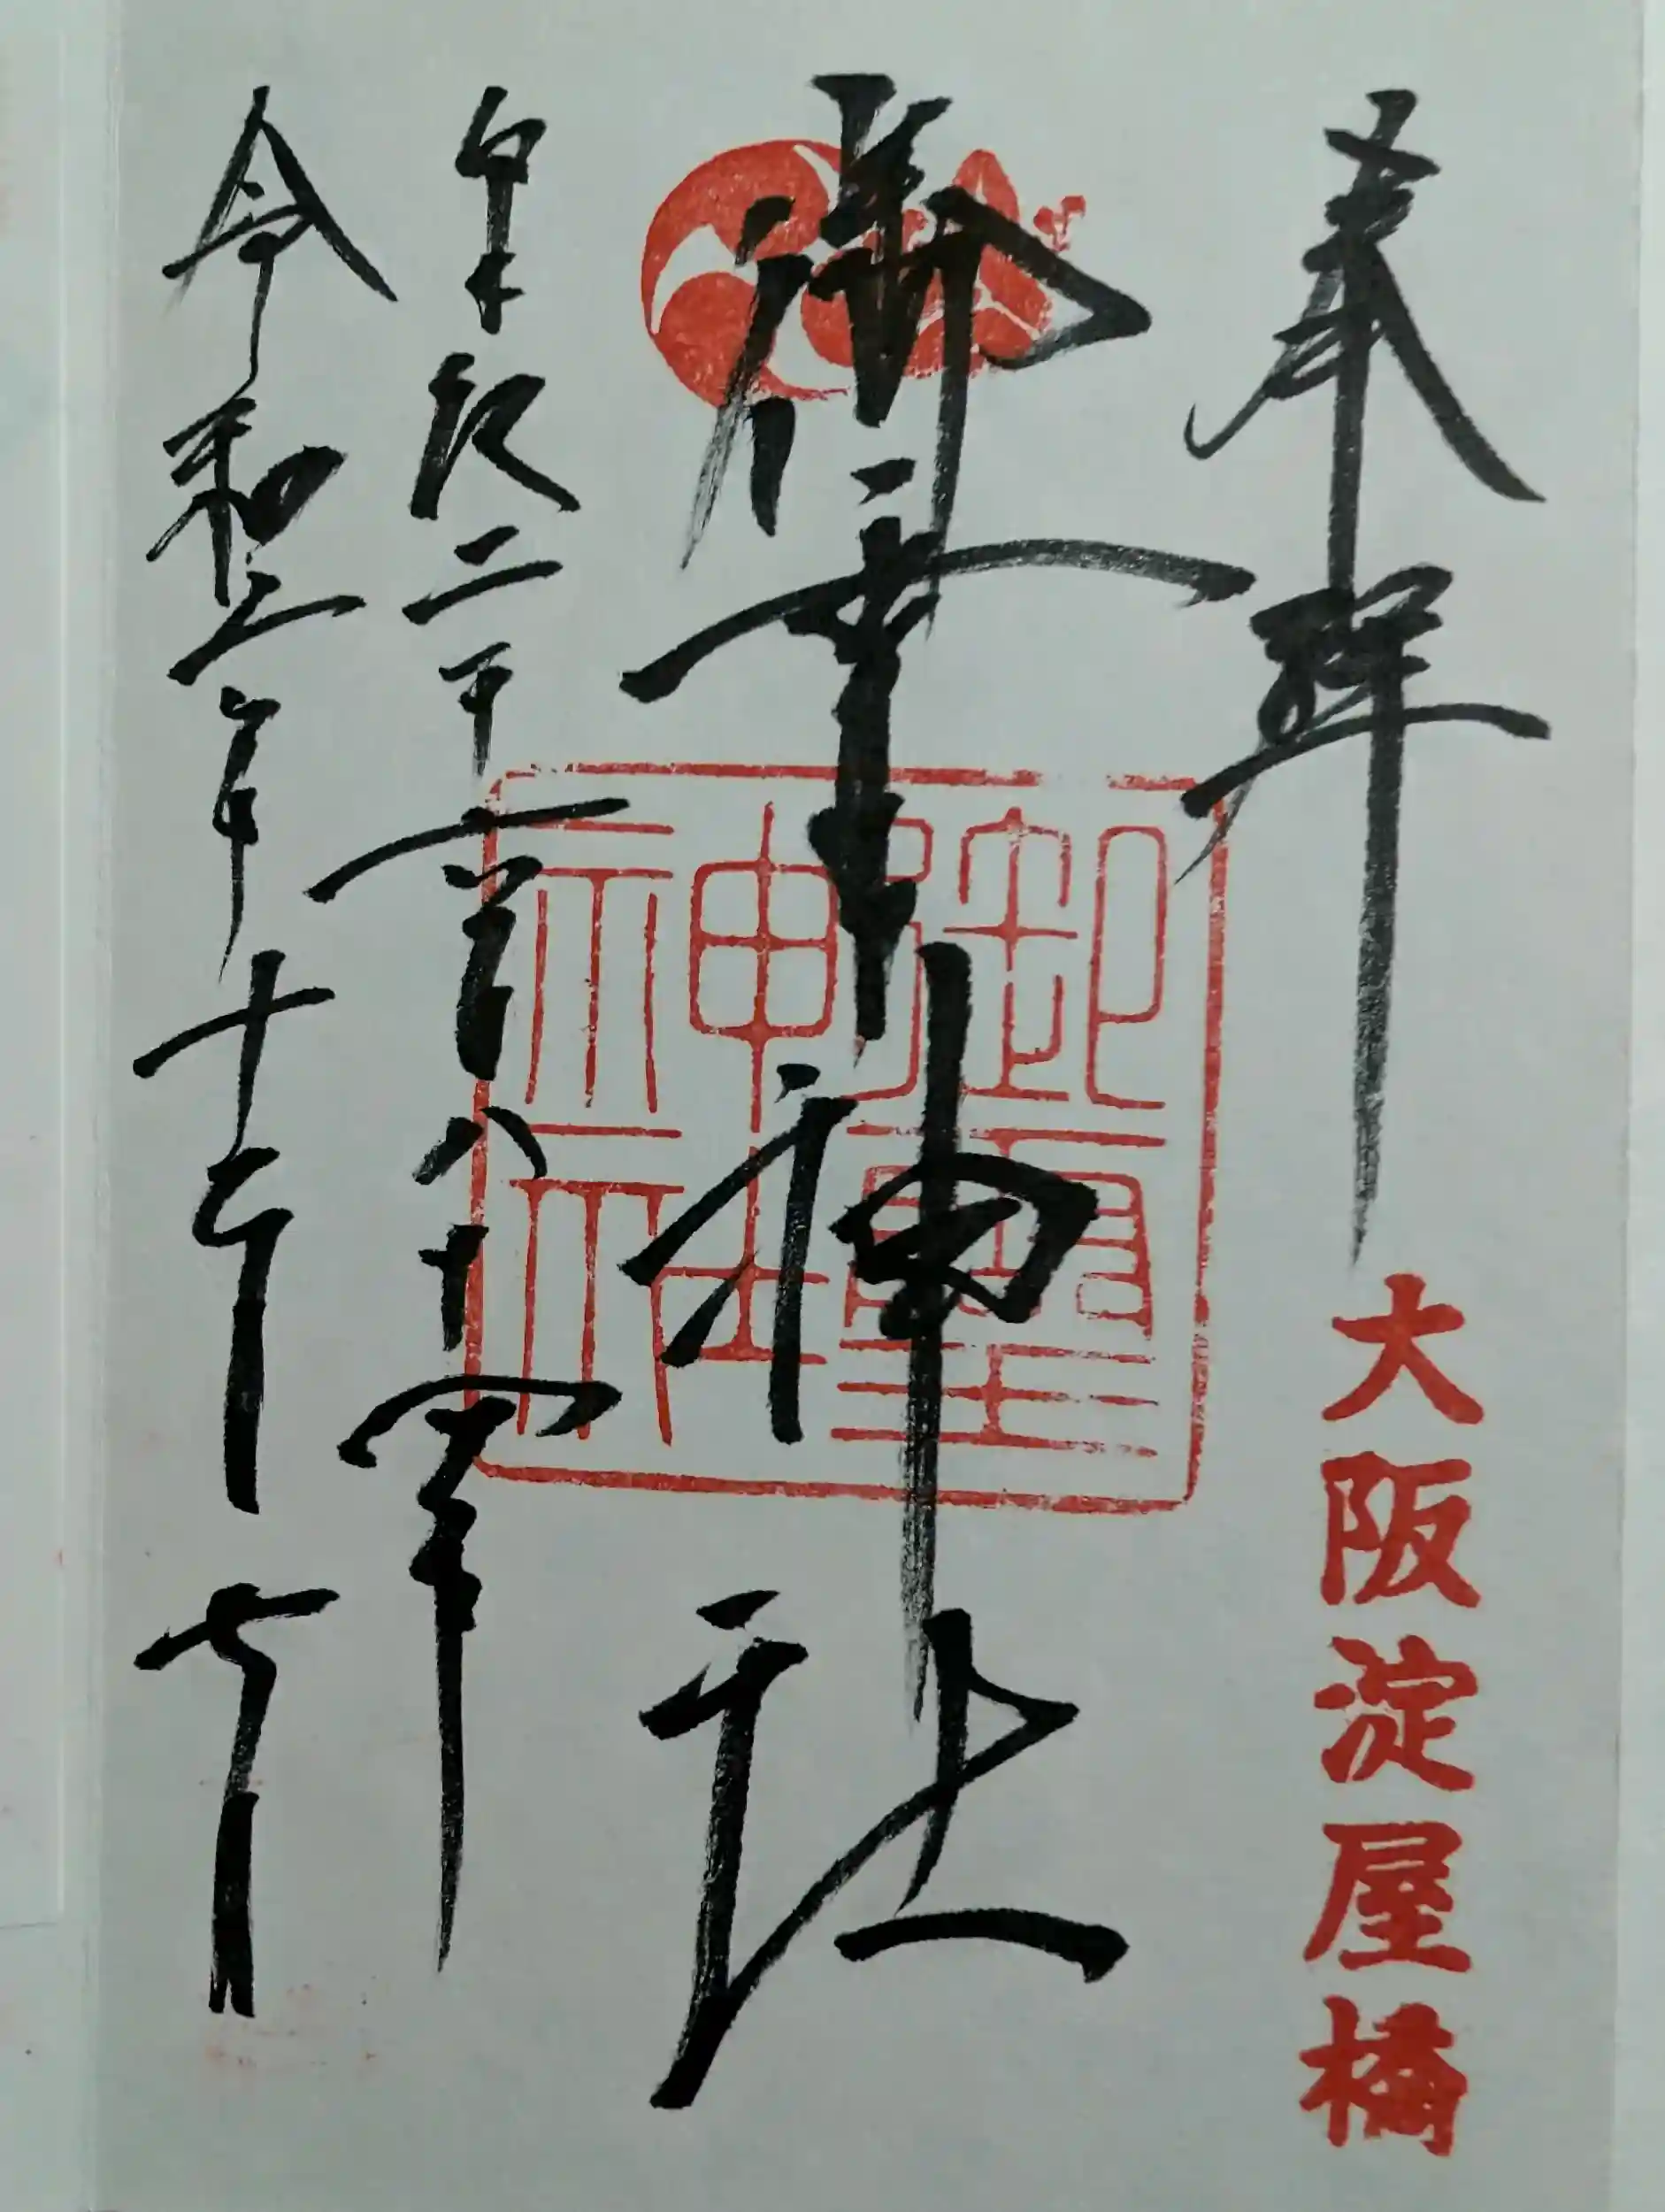 奉拝
大阪淀屋橋
御霊神社
御靈
神社
皇紀二千六百八十四年
令和六年十